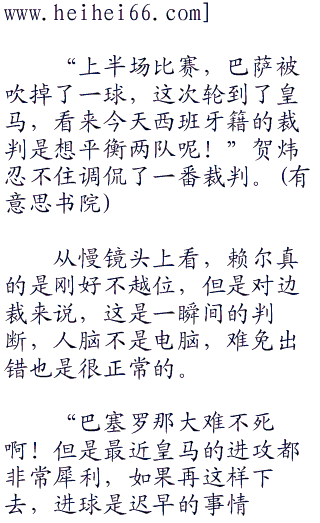 www.heihei66.com]
“上半场比赛，巴萨被
吹掉了一球，这次轮到了皇
马，看来今天西班牙籍的裁
判是想平衡两队呢！”贺炜
忍不住调侃了一番裁判。(有
意思书院)
从慢镜头上看，赖尔真
的是刚好不越位，但是对边
裁来说，这是一瞬间的判
断，人脑不是电脑，难免出
错也是很正常的。
“巴塞罗那大难不死
啊！但是最近皇马的进攻都
非常犀利，如果再这样下
去，进球是迟早的事情